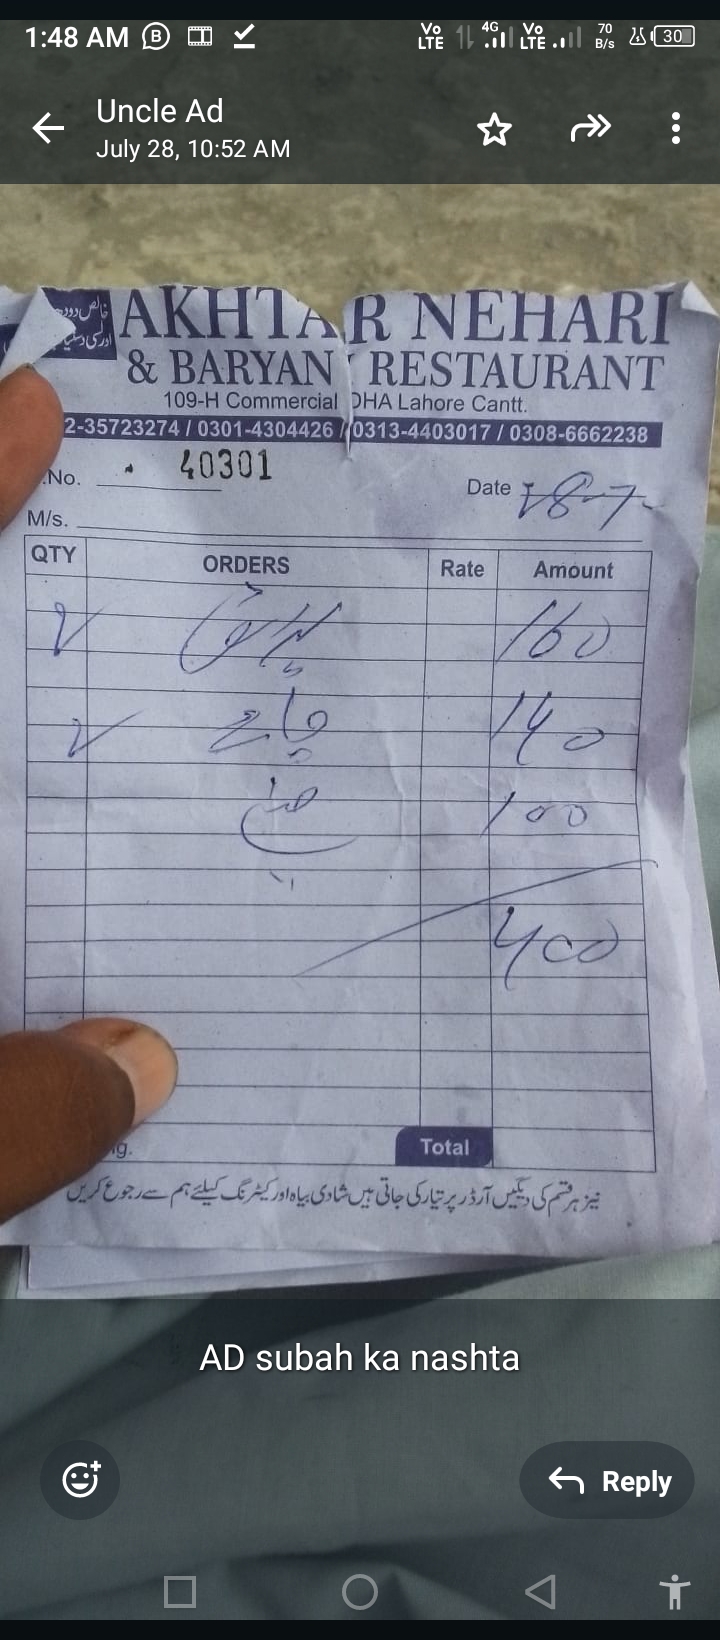 1:48 AM
Vo LTE 4G Vo LTE 70 B/s 30
Uncle Ad
July 28, 10:52 AM
خالص دودھ
AKHTAR NEHARI
& BARYAN RESTAURANT
109-H Commercial DHA Lahore Cantt.
2-35723274 / 0301-4304426 / 0313-4403017 / 0308-6662238
.No. 40301
Date 28-7-
M/s.
QTY ORDERS Rate Amount
2 160
2 چائے 140
100
400
g.
Total
نیز ہر قسم کی دیگیں آرڈر پر تیار کی جاتی ہیں شادی بیاہ اور کیٹرنگ کیلئے ہم سے رجوع کریں
AD subah ka nashta
Reply